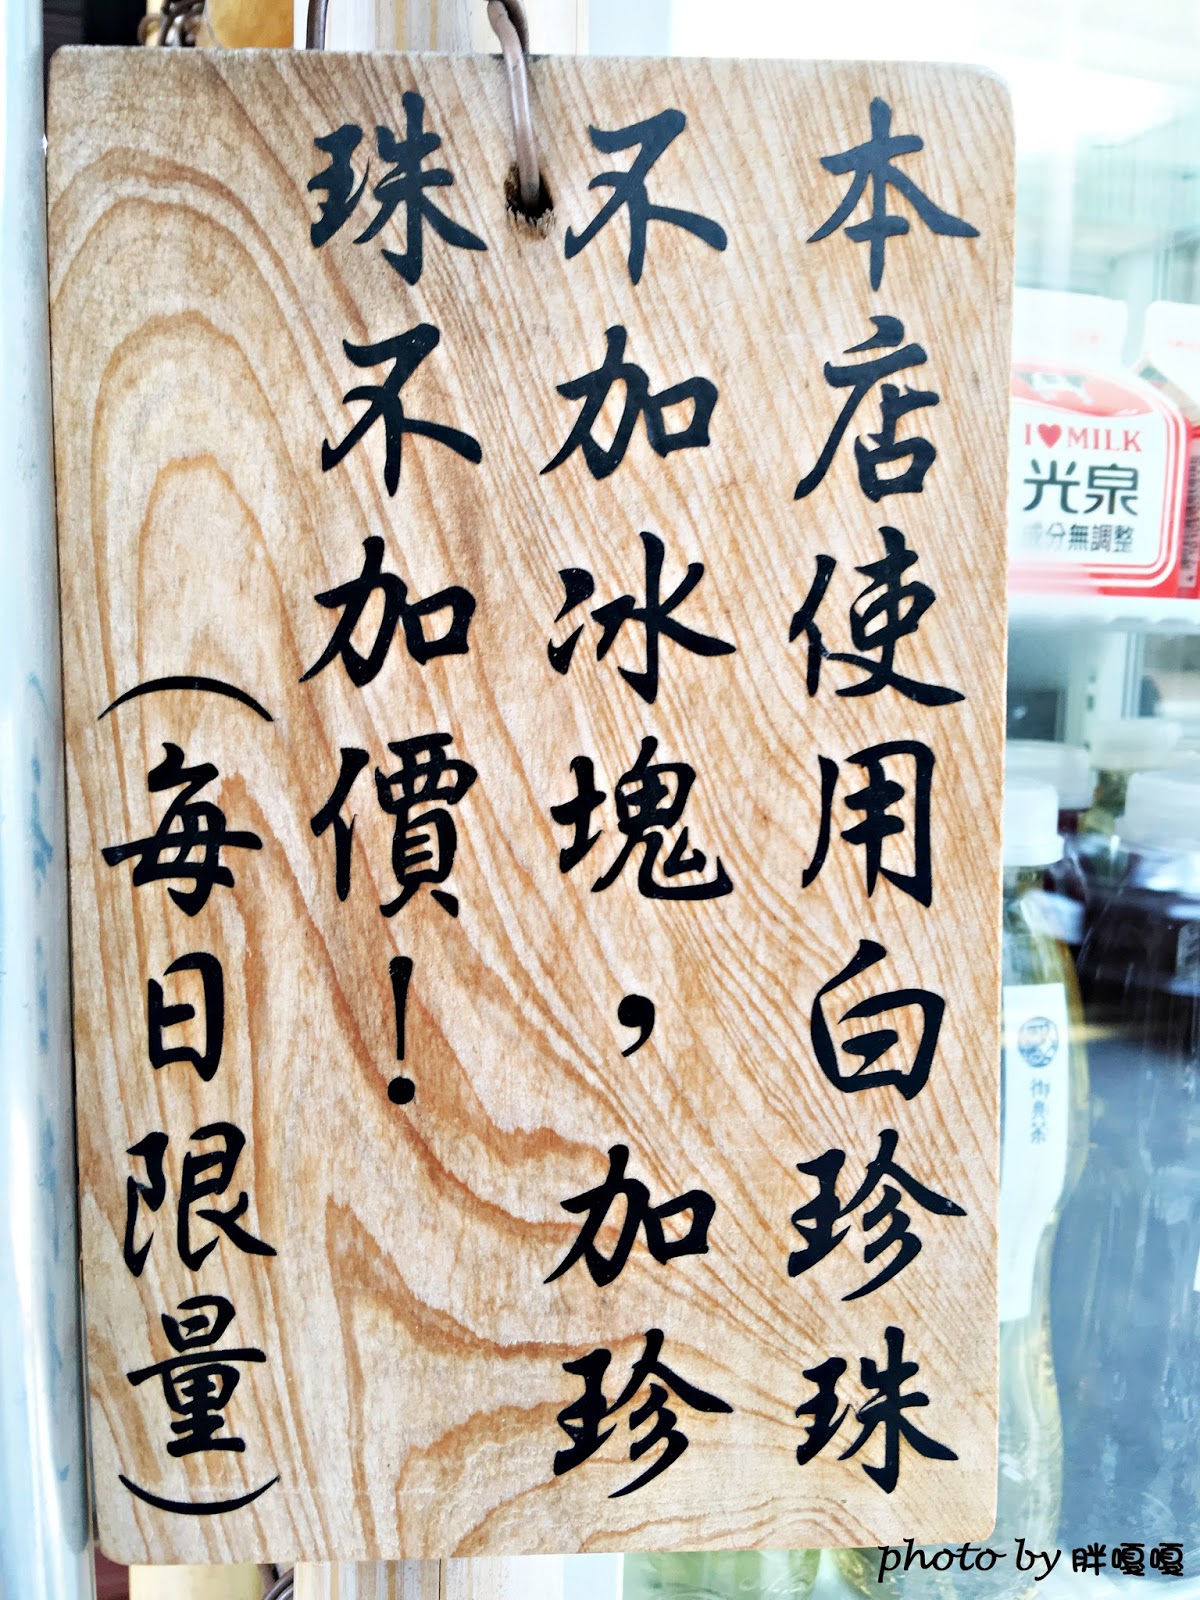 本店使用白珍珠
不加冰塊，加珍
珠不加價！
（每日限量）
I♥MILK
光泉
成分無調整
御典茶
photo by 胖嘎嘎